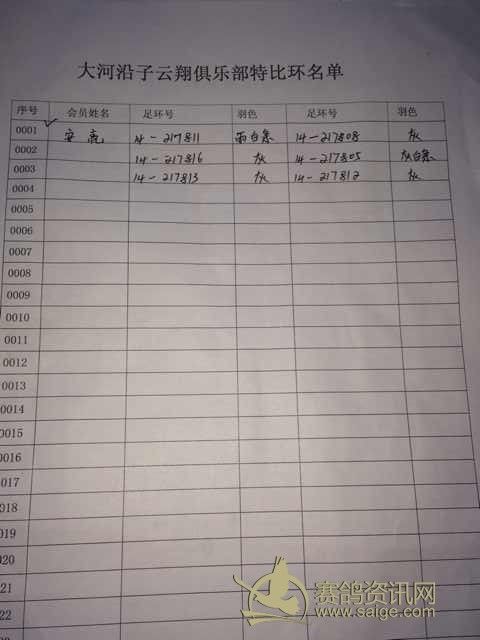 大河沿子云翔俱乐部特比环名单
序号 会员姓名 足环号 羽色 足环号 羽色
0001 安亮 14-217811 雨白条 14-217808 灰
0002 14-217816 灰 14-217805 灰白条
0003 14-217813 灰 14-217812 灰
0004
0005
0006
0007
0008
0009
0010
0011
0012
0013
0014
0015
0016
0017
0018
0019
020
21
22
赛鸽资讯网
www.saige.com